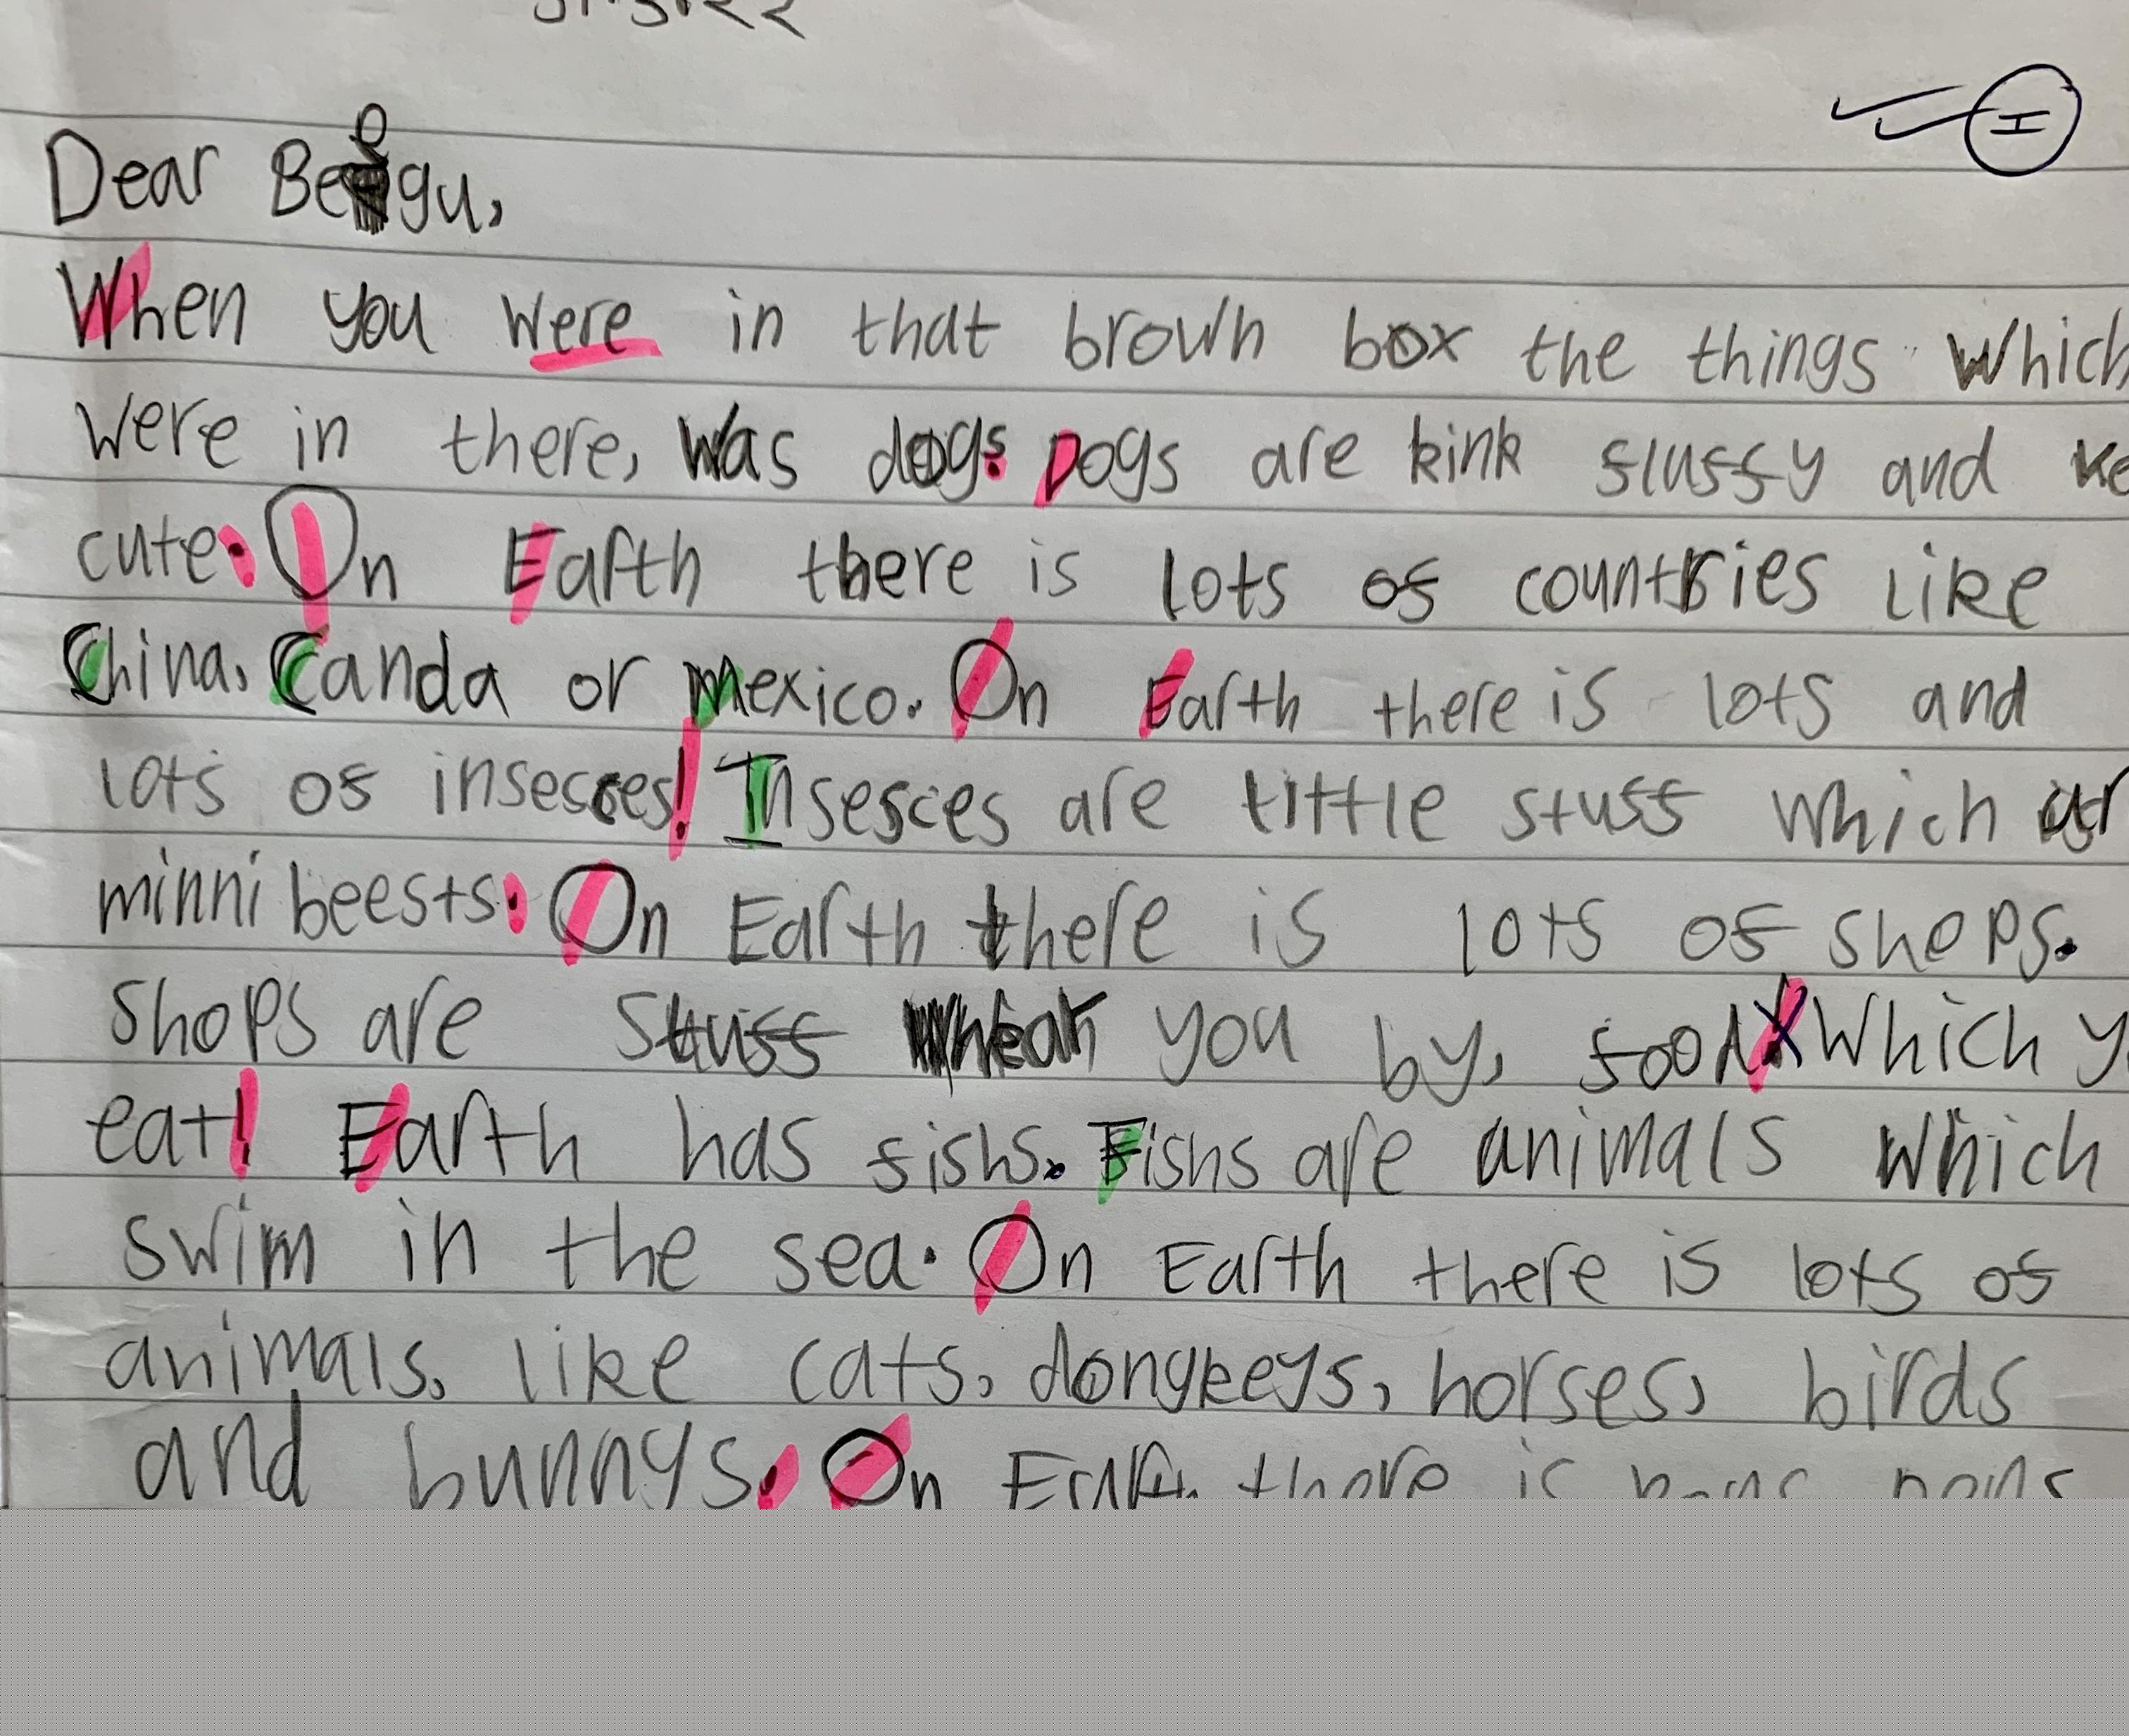 Dear Beegu,
When you were in that brown box the things which
were in there, was dogs. Dogs are kink fluffy and
cute. On Earth there is lots of countries like
China, Canda or Mexico. On Earth there is lots and
lots of insecces! Insesces are little stuff which
minni beests. On Earth there is lots of shops.
Shops are stuff you by, food which
eat! Earth has fishs. Fishs are animals which
swim in the sea. On Earth there is lots of
animals, like cats, dongkeys, horses, birds
and bunnys. On Earth there is